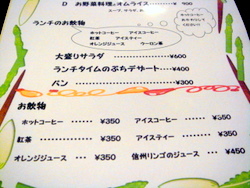 D お野菜料理とオムライス ¥900
スープ、サラダ、
ランチのお飲物
ホットコーヒー アイスコーヒー
紅茶 アイスティー
オレンジジュース ウーロン茶
ホットコーヒー
大盛りサラダ ¥600
ランチタイムのぷちデザート ¥400
パン ¥300
お飲物
ホットコーヒー ¥350 アイスコーヒー ¥350
紅茶 ¥350 アイスティー ¥350
オレンジジュース ¥350 信州リンゴのジュース ¥450